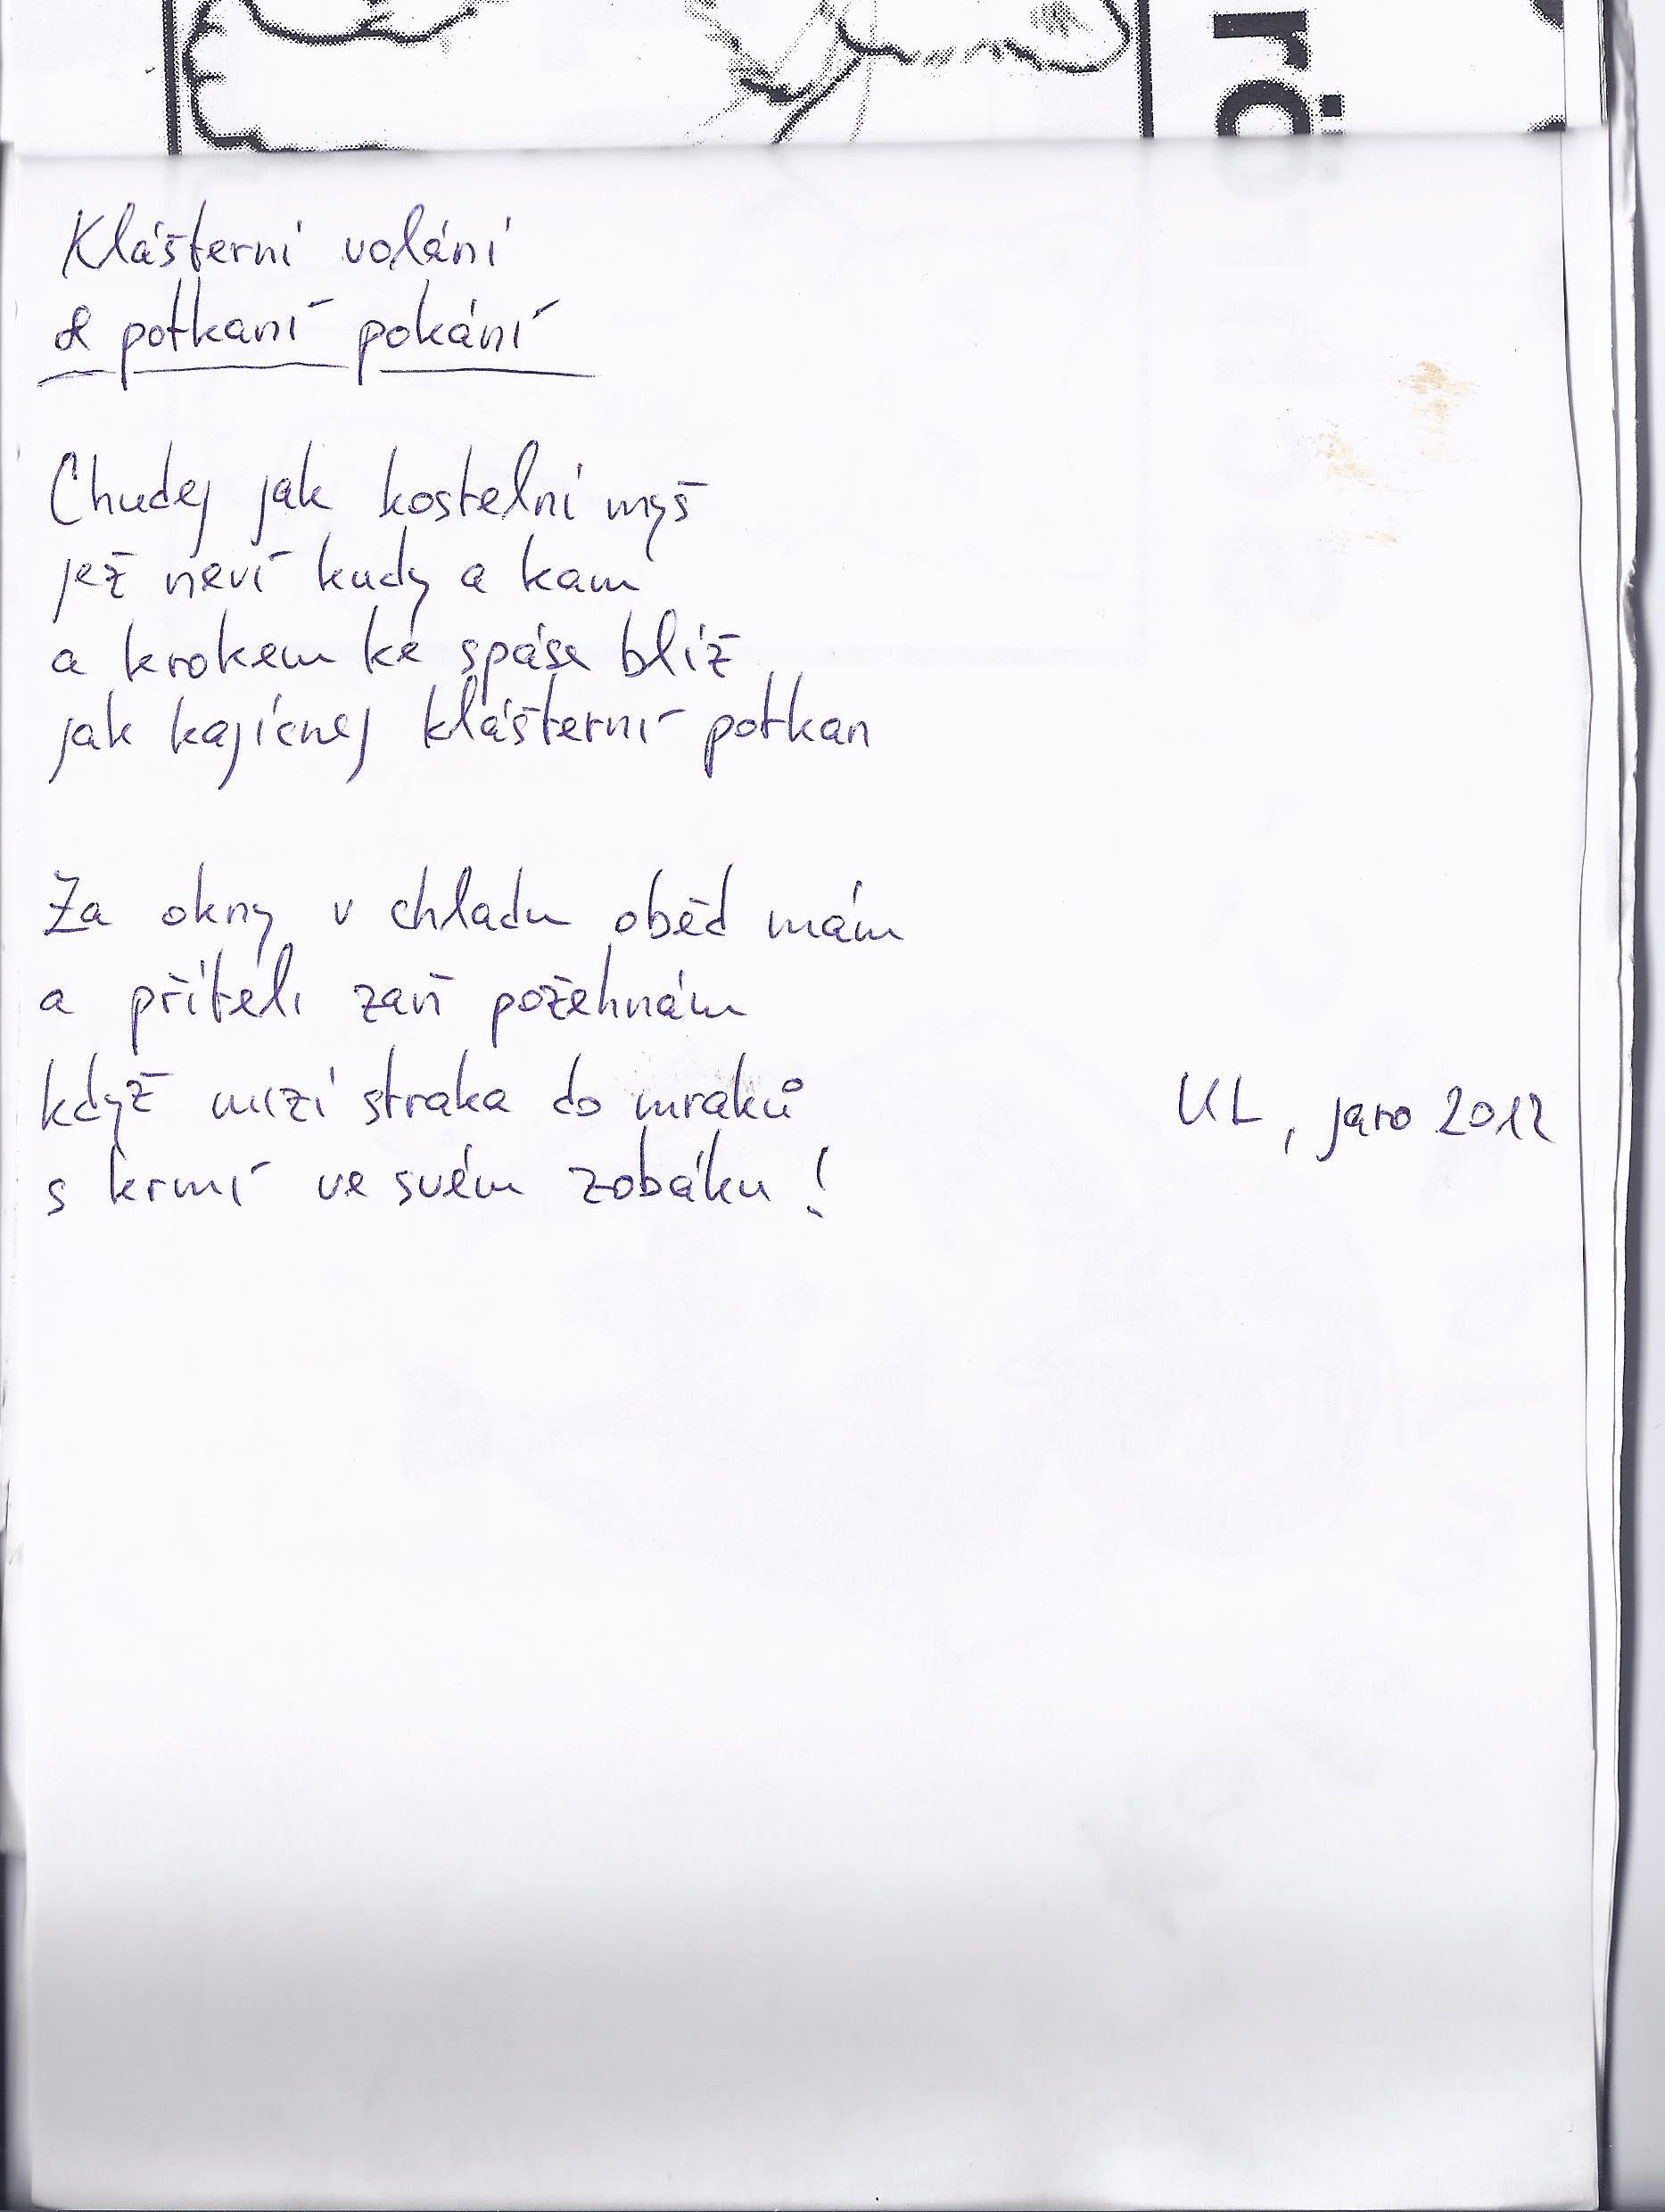 rö
Klášterní volání
& potkaní pokání
Chudej jak kostelní myš
jež neví kudy a kam
a krokem ke spáse blíž
jak kajícnej klášterní potkan
Za okny v chladu oběd mám
a příteli zaň požehnám
když mizí straka do mraků
s krmí ve svém zobáku!
UL, jaro 2012